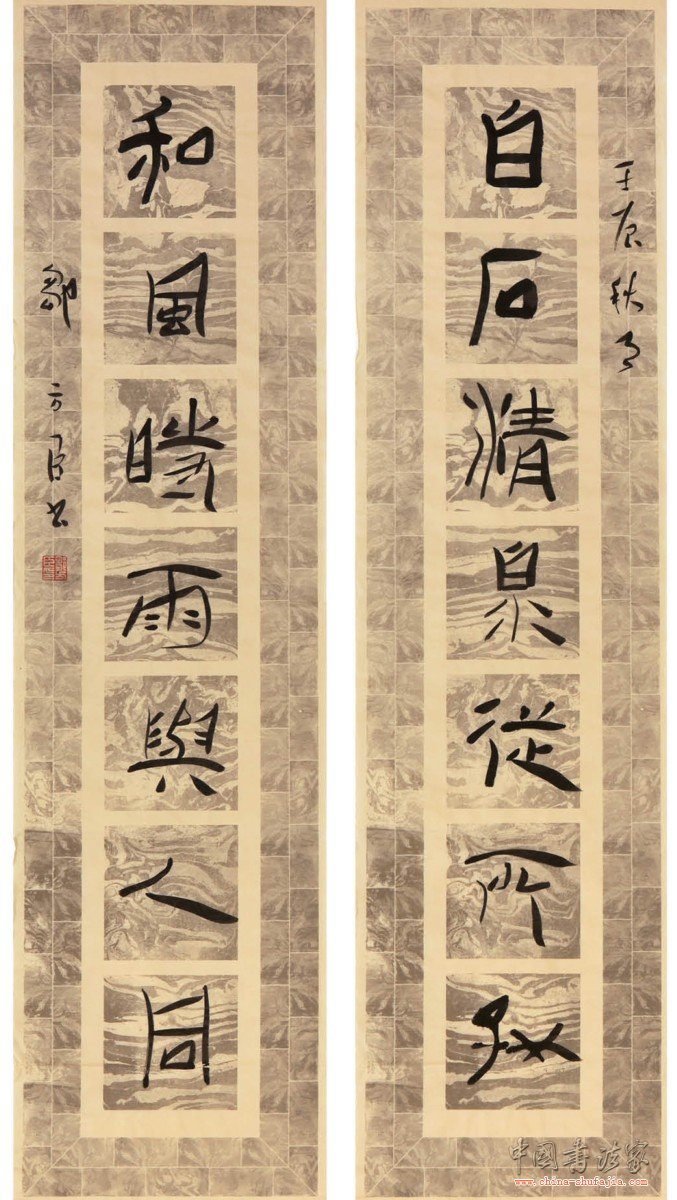 壬辰秋月
白石清泉從所好
和風時雨與人同
鄒方臣書
中國書法家
www.china-shufajia.com